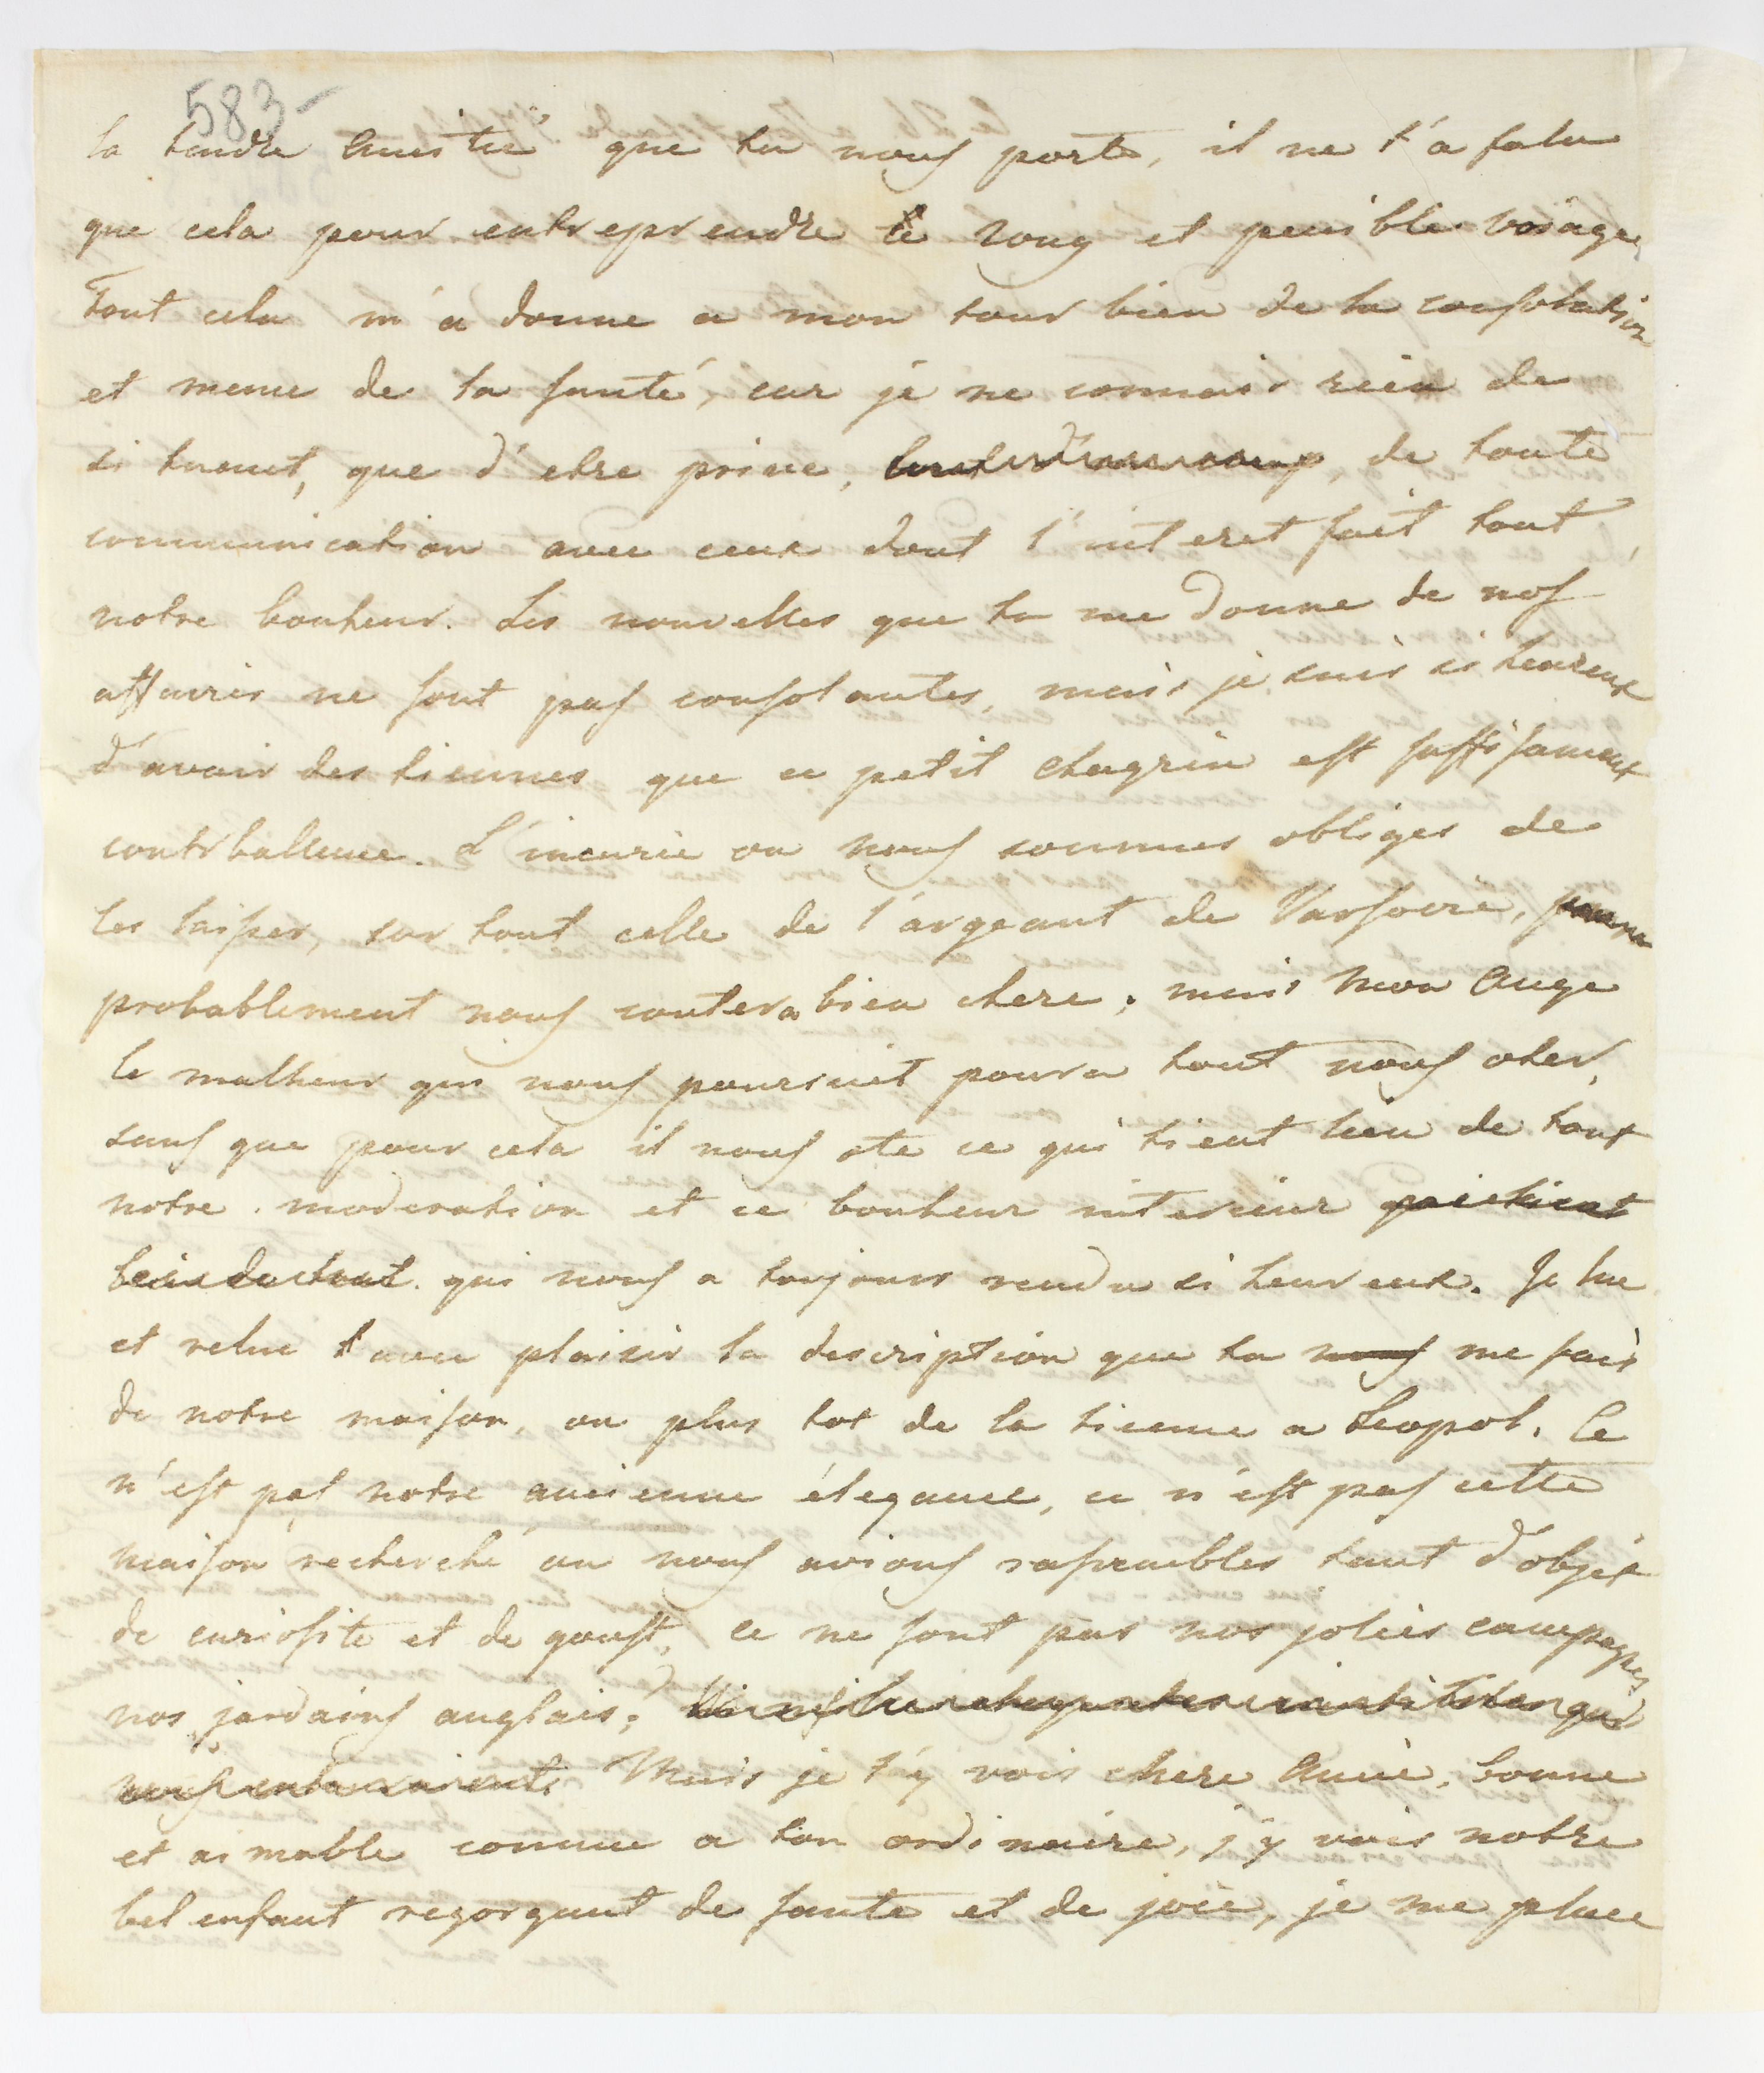 583
la tendre amitié que tu nous porte, il ne t'a falu
que cela pour entreprendre ce long et penible voiage,
Tout cela m'a donne a mon tour bien de la consolation
et meme de la santé, car je ne connais rien de
si tuant, que d'etre prive, tout d'un coup, de toute
communication avec ceux dont l'interet fait tout
notre bonheur. Les nouvelles que tu me donne de nos
affaires ne sont pas consolantes, mais je suis si heureux
d'avoir des tiennes que ce petit chagrin est suffisament
contrballence. L'incurie ou nous sommes obliges de
les laisser, sur tout celle de l'argeant de Varsovie,
probablement nous coutera bien chere, mais mon Ange
le malheur qui nous poursuit poura tout nous oter,
sans que pour cela il nous ote ce qui tient lieu de tout
notre moderation et ce bonheur interieur qui tient
lieu de tout. qui nous a toujours rendu si heureux. Je lue
et relue avec plaisir la description que tu nous me fais
de notre maison, ou plus tot de la tienne a Leopol. Ce
n'est pas notre ancienne élegance, ce n'est pas cette
maison recherché ou nous avions rassembles tant d'objet
de curiosite et de goust, ce ne sont pas nos jolies campagnes
nos jardains anglais,
Mais je t'y vois chere Amie, bonne
et aimable comme a ton ordinaire, j'y vois notre
bel enfant regorgant de sante et de joie, je me place